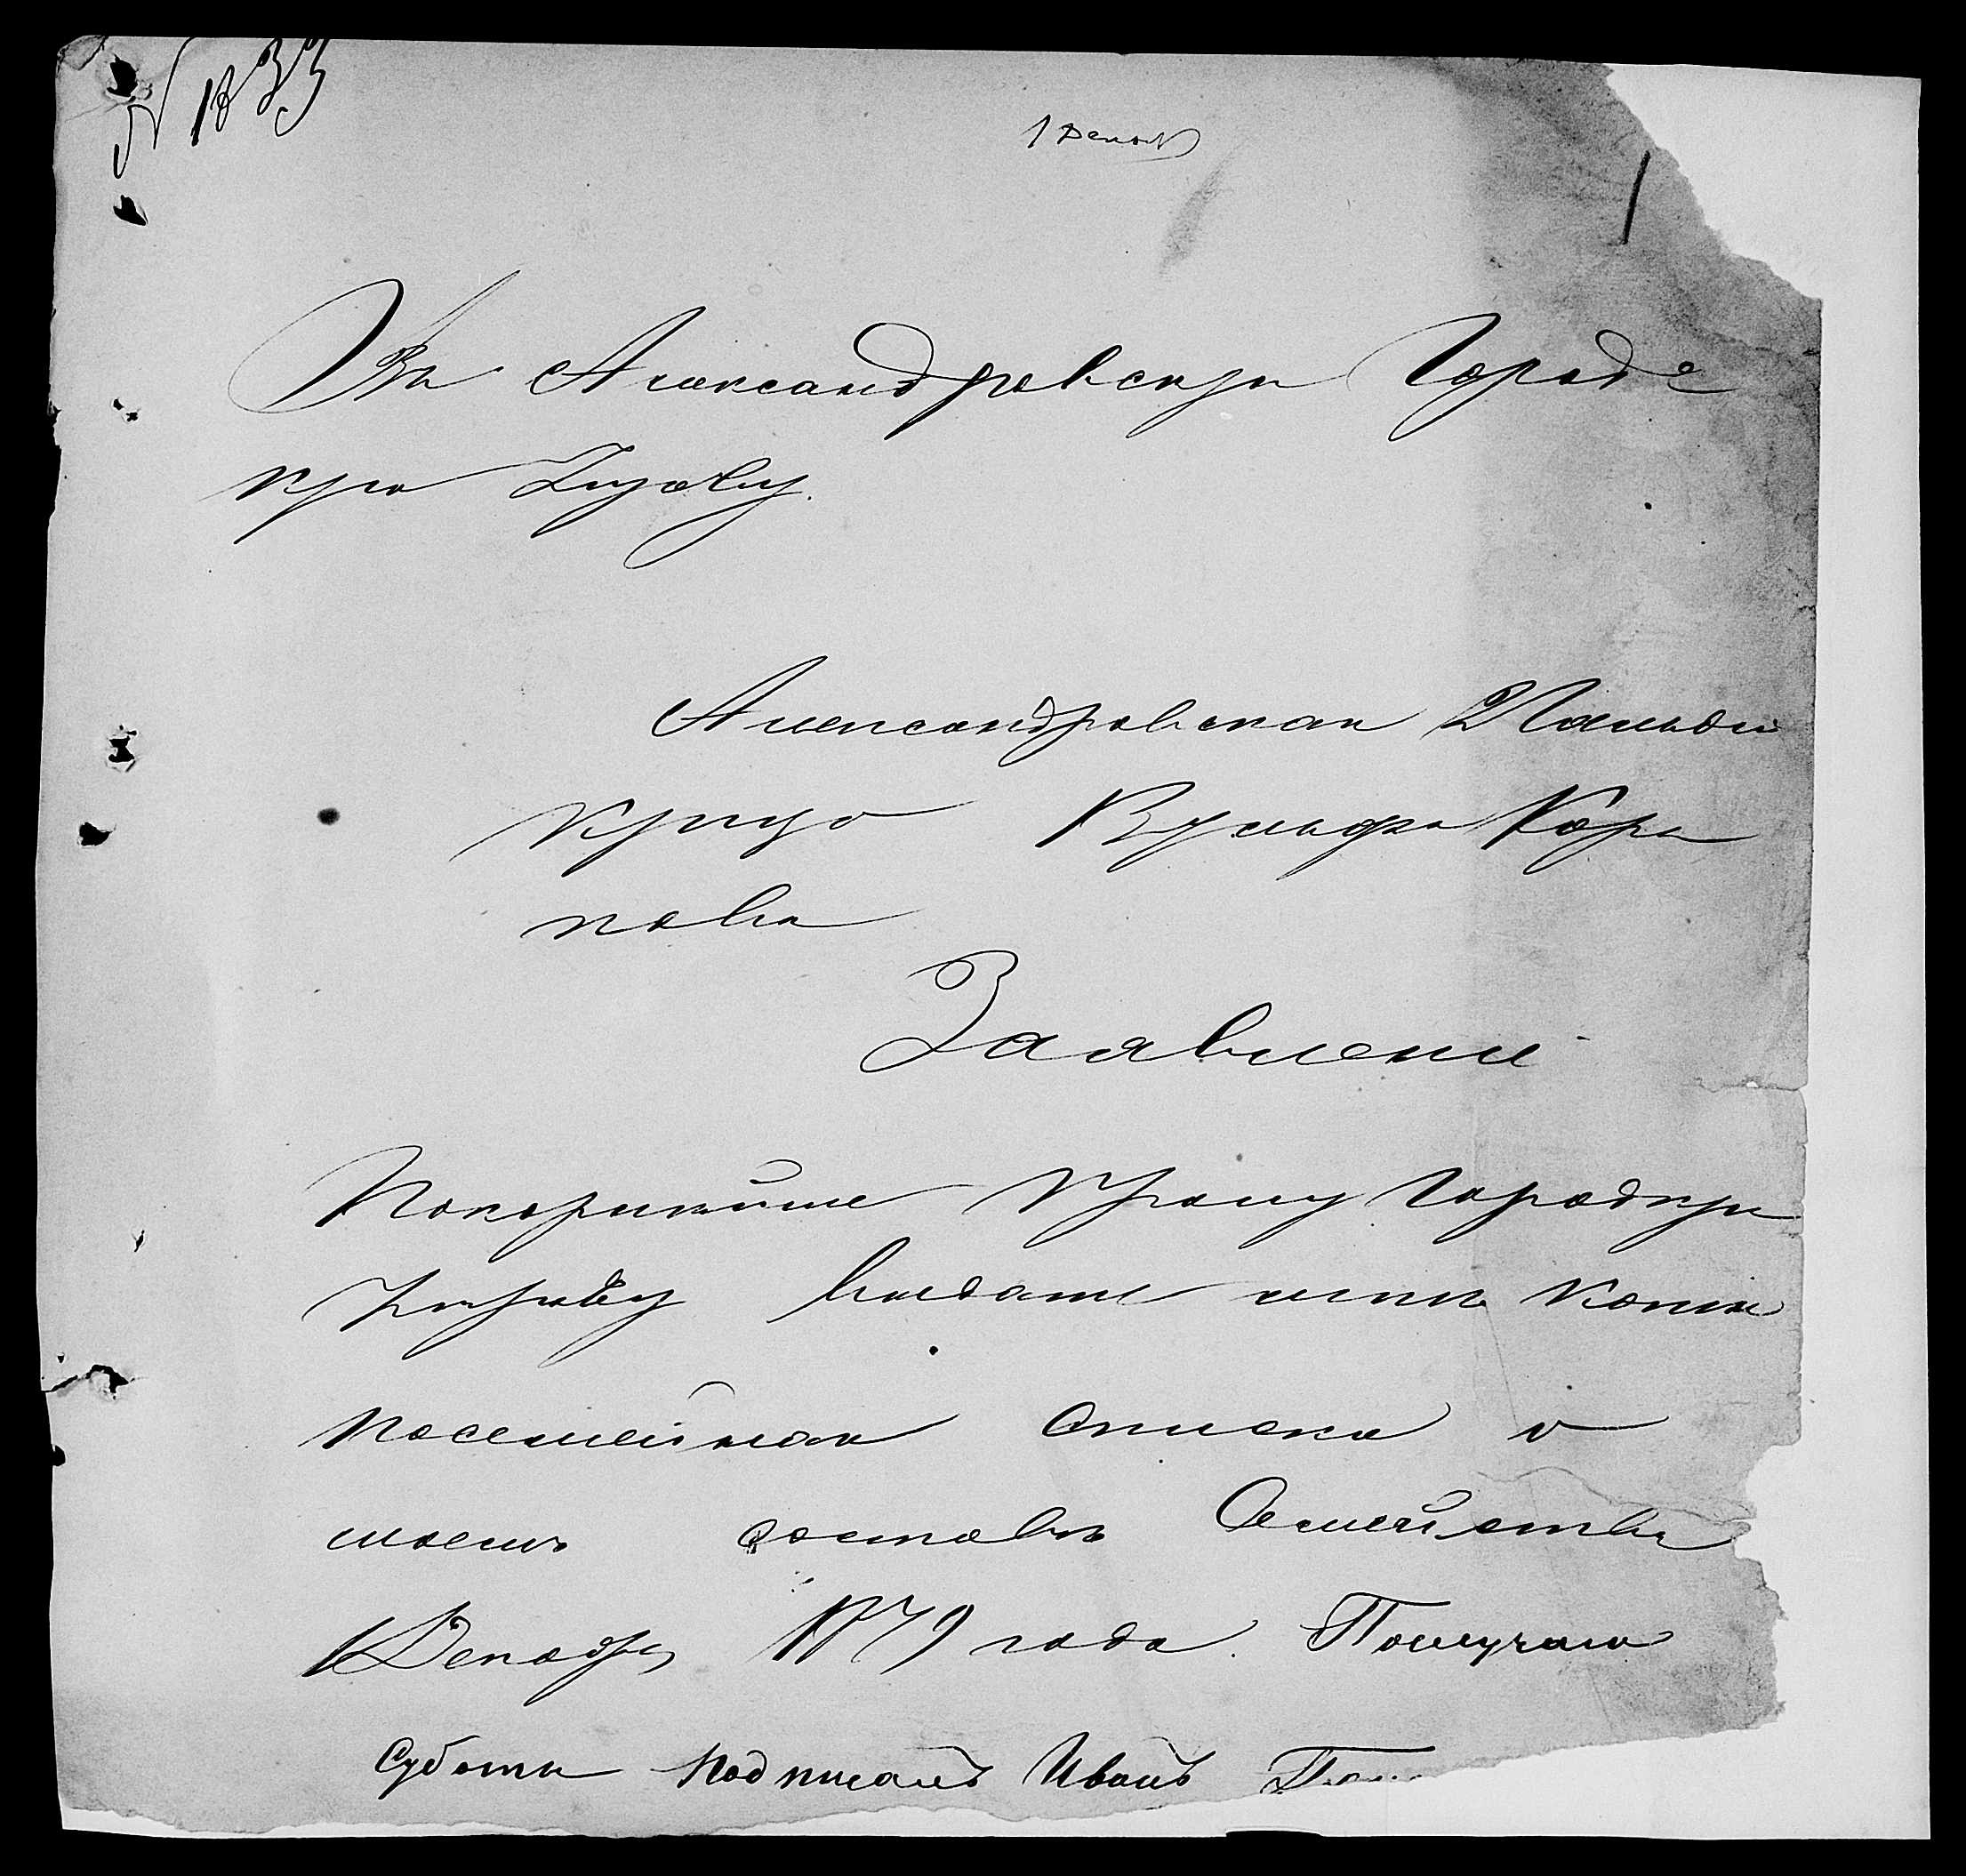 № 1833
1 Декаб
1
Въ Александровскую Городс
кую Управу.
Александровскаго
Заявленіе
Покорнѣйше прошу Городскую
Управу выдать мнѣ копію
посемейнаго списка о
моемъ составѣ Семейства
1 Декабря 1879 года. По случаю
Суботы подписалъ Иванъ